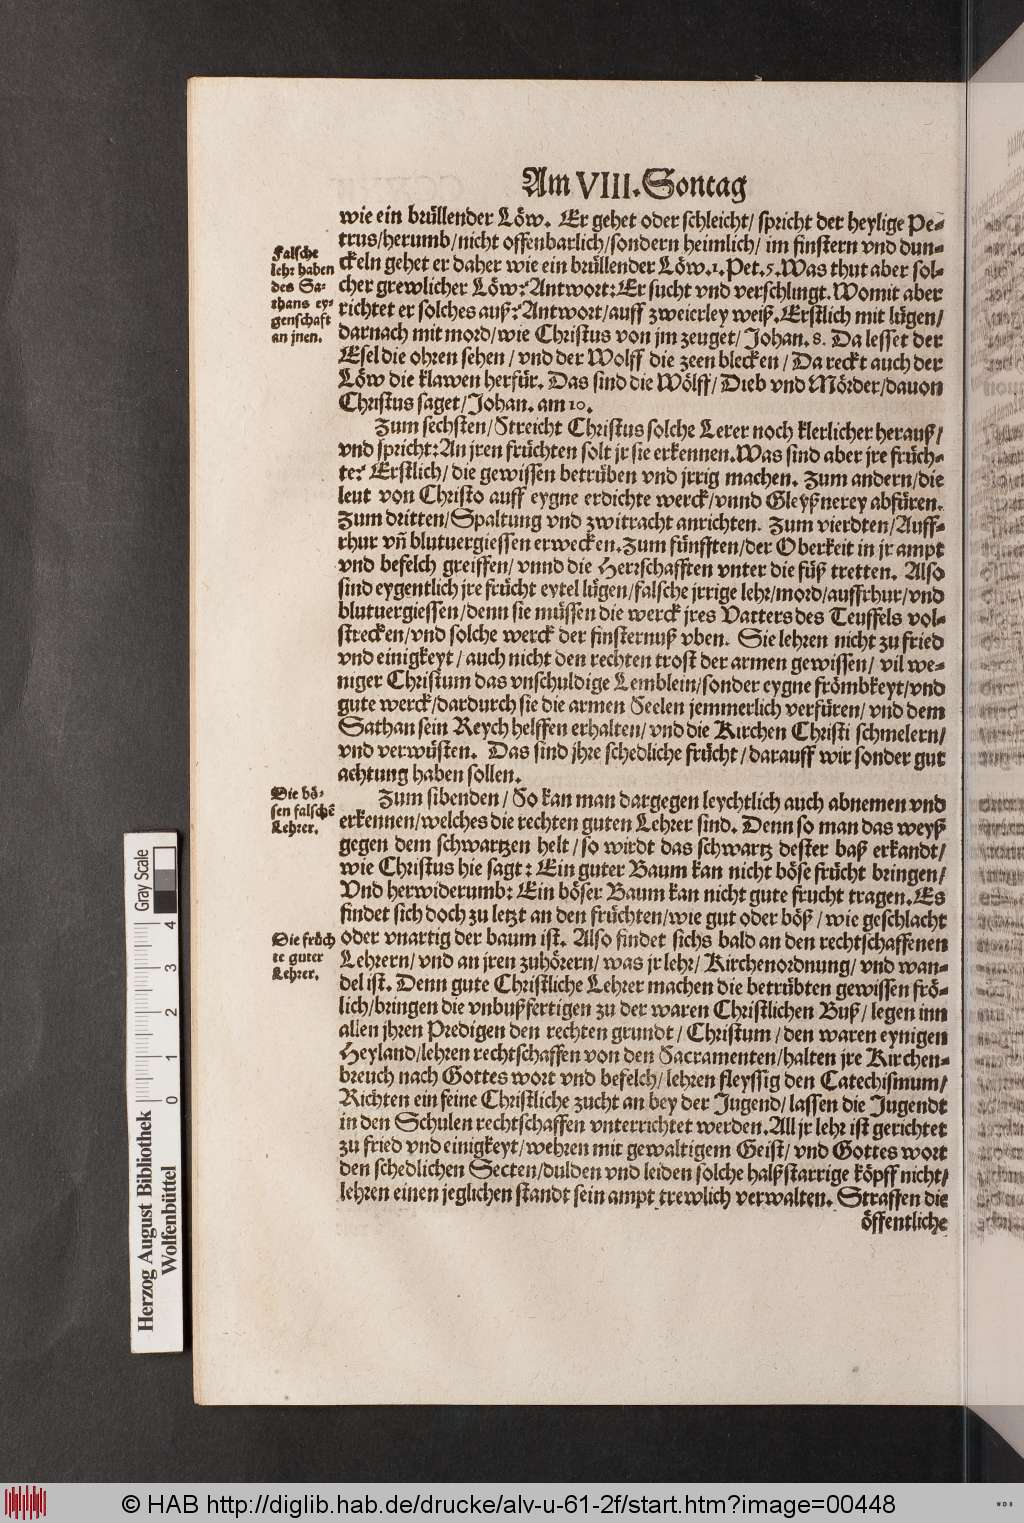 Am VIII. Sontag
wie ein brüllender Löw. Er gehet oder schleicht/ spricht der heylige Pe-
trus/herumb/nicht offenbarlich/sondern heimlich/ im finstern vnd dun-
ckeln gehet er daher wie ein brüllender Löw.1.Pet.5. Was thut aber sol-
cher grewlicher Löw? Antwort: Er sucht vnd verschlingt. Womit aber
richtet er solches auß? Antwort/auff zweierley weiß. Erstlich mit lügen/
darnach mit mord/wie Christus von jm zeuget/ Johan. 8. Da lesset der
Esel die ohren sehen/ vnd der Wolff die zeen blecken/ Da reckt auch der
Löw die klawen herfür. Das sind die Wölff/ Dieb vnd Mörder/dauon
Christus saget/ Johan. am 10.
Falsche
lehr haben
des Sa-
thans ey-
genschafft
an jnen.
Zum sechsten/ Streicht Christus solche Lerer noch klerlicher herauß/
vnd spricht: An jren früchten solt jr sie erkennen. Was sind aber jre früch-
te? Erstlich/ die gewissen betrüben vnd jrrig machen. Zum andern/die
leut von Christo auff eygne erdichte werck/vnnd Gleyßnerey abfüren.
Zum dritten/Spaltung vnd zwitracht anrichten. Zum vierdten/ Auff-
rhur vñ blutuergiessen erwecken. Zum fünfften/der Oberkeit in jr ampt
vnd befelch greiffen/ vnnd die Herrschafften vnter die füß tretten. Also
sind eygentlich jre frücht eytel lügen/falsche jrrige lehr/mord/auffrhur/vnd
blutuergiessen/denn sie müssen die werck jres Vatters des Teuffels vol-
strecken/vnd solche werck der finsternuß vben. Sie lehren nicht zu fried
vnd einigkeyt/ auch nicht den rechten trost der armen gewissen/ vil we-
niger Christum das vnschuldige Lemblein/sonder eygne frömbkeyt/vnd
gute werck/dardurch sie die armen Seelen jemmerlich verfüren/ vnd dem
Sathan sein Reych helffen erhalten/ vnd die Kirchen Christi schmelern/
vnd verwüsten. Das sind jhre schedliche frücht/ darauff wir sonder gut
achtung haben sollen.
Die bö-
sen falschẽ
Lehrer.
Zum sibenden/ So kan man dargegen leychtlich auch abnemen vnd
erkennen/welches die rechten guten Lehrer sind. Denn so man das weyß
gegen dem schwartzen helt/ so wirdt das schwartz dester baß erkandt/
wie Christus hie sagt: Ein guter Baum kan nicht böse frücht bringen/
Vnd herwiderumb: Ein böser Baum kan nicht gute frucht tragen. Es
findet sich doch zu letzt an den früchten/wie gut oder böß/ wie geschlacht
oder vnartig der baum ist. Also findet sichs bald an den rechtschaffenen
Lehrern/ vnd an jren zuhörern/ was jr lehr/ Kirchenordnung/ vnd wan-
del ist. Denn gute Christliche Lehrer machen die betrübten gewissen frö-
lich/bringen die vnbußfertigen zu der waren Christlichen Buß/ legen inn
allen jhren Predigen den rechten grundt/ Christum/ den waren eynigen
Heyland/lehren rechtschaffen von den Sacramenten/halten jre Kirchen-
breuch nach Gottes wort vnd befelch/ lehren fleyssig den Catechismum/
Richten ein feine Christliche zucht an bey der Jugend/ lassen die Jugendt
in den Schulen rechtschaffen vnterrichtet werden. All jr lehr ist gerichtet
zu fried vnd einigkeyt/wehren mit gewaltigem Geist/ vnd Gottes wort
den schedlichen Secten/dulden vnd leiden solche halßstarrige köpff nicht/
lehren einen jeglichen standt sein ampt trewlich verwalten. Straffen die
öffentliche
Die früch
te guter
Lehrer.
Herzog August Bibliothek
Wolfenbüttel
0 1 2 3 4
Gray Scale
© HAB http://diglib.hab.de/drucke/alv-u-61-2f/start.htm?image=00448